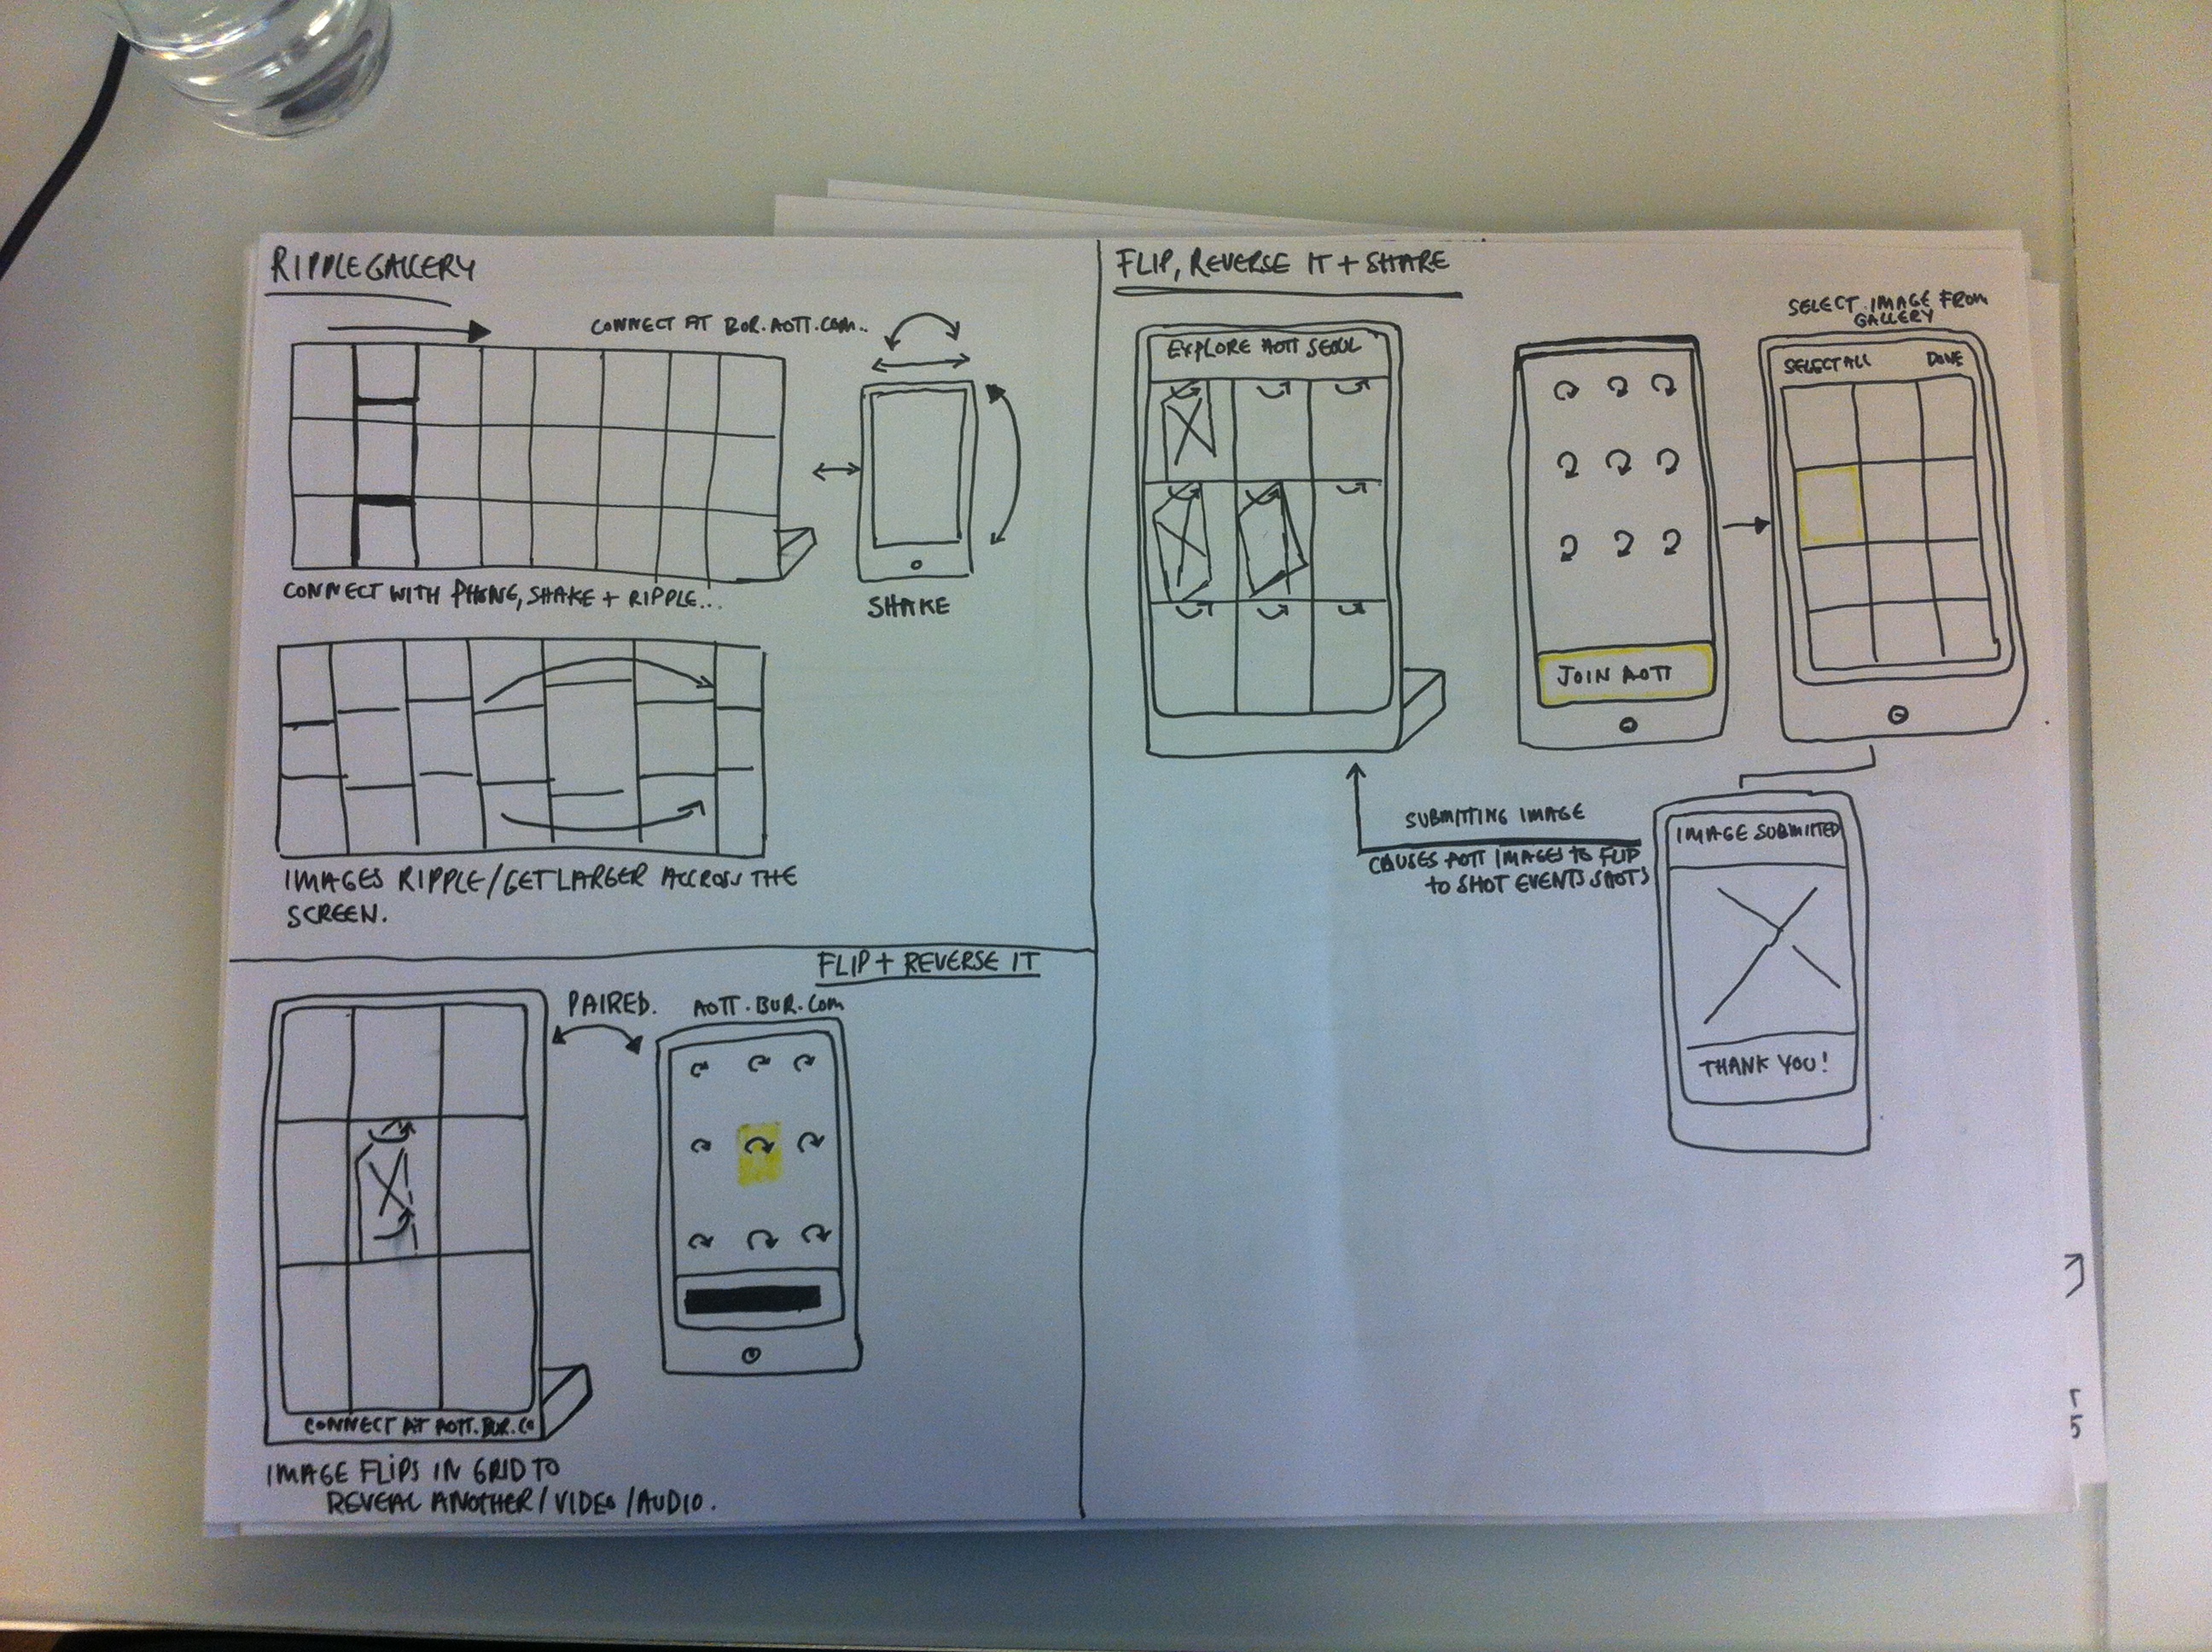 RIPPLE GALLERY
CONNECT AT BUR.AOTT.COM..
CONNECT WITH PHONE, SHAKE + RIPPLE...
SHAKE
IMAGES RIPPLE/GET LARGER ACCROSS THE
SCREEN.
FLIP + REVERSE IT
PAIRED.
AOTT.BUR.COM
CONNECT AT AOTT.BUR.CO
IMAGE FLIPS IN GRID TO
REVEAL ANOTHER/VIDEO/AUDIO.
FLIP, REVERSE IT + SHARE
EXPLORE AOTT SEOUL
JOIN AOTT
SELECT IMAGE FROM
GALLERY
SELECT ALL DONE
SUBMITTING IMAGE
CAUSES AOTT IMAGES TO FLIP
TO SHOT EVENTS SHOTS
IMAGE SUBMITTED
THANK YOU!
5